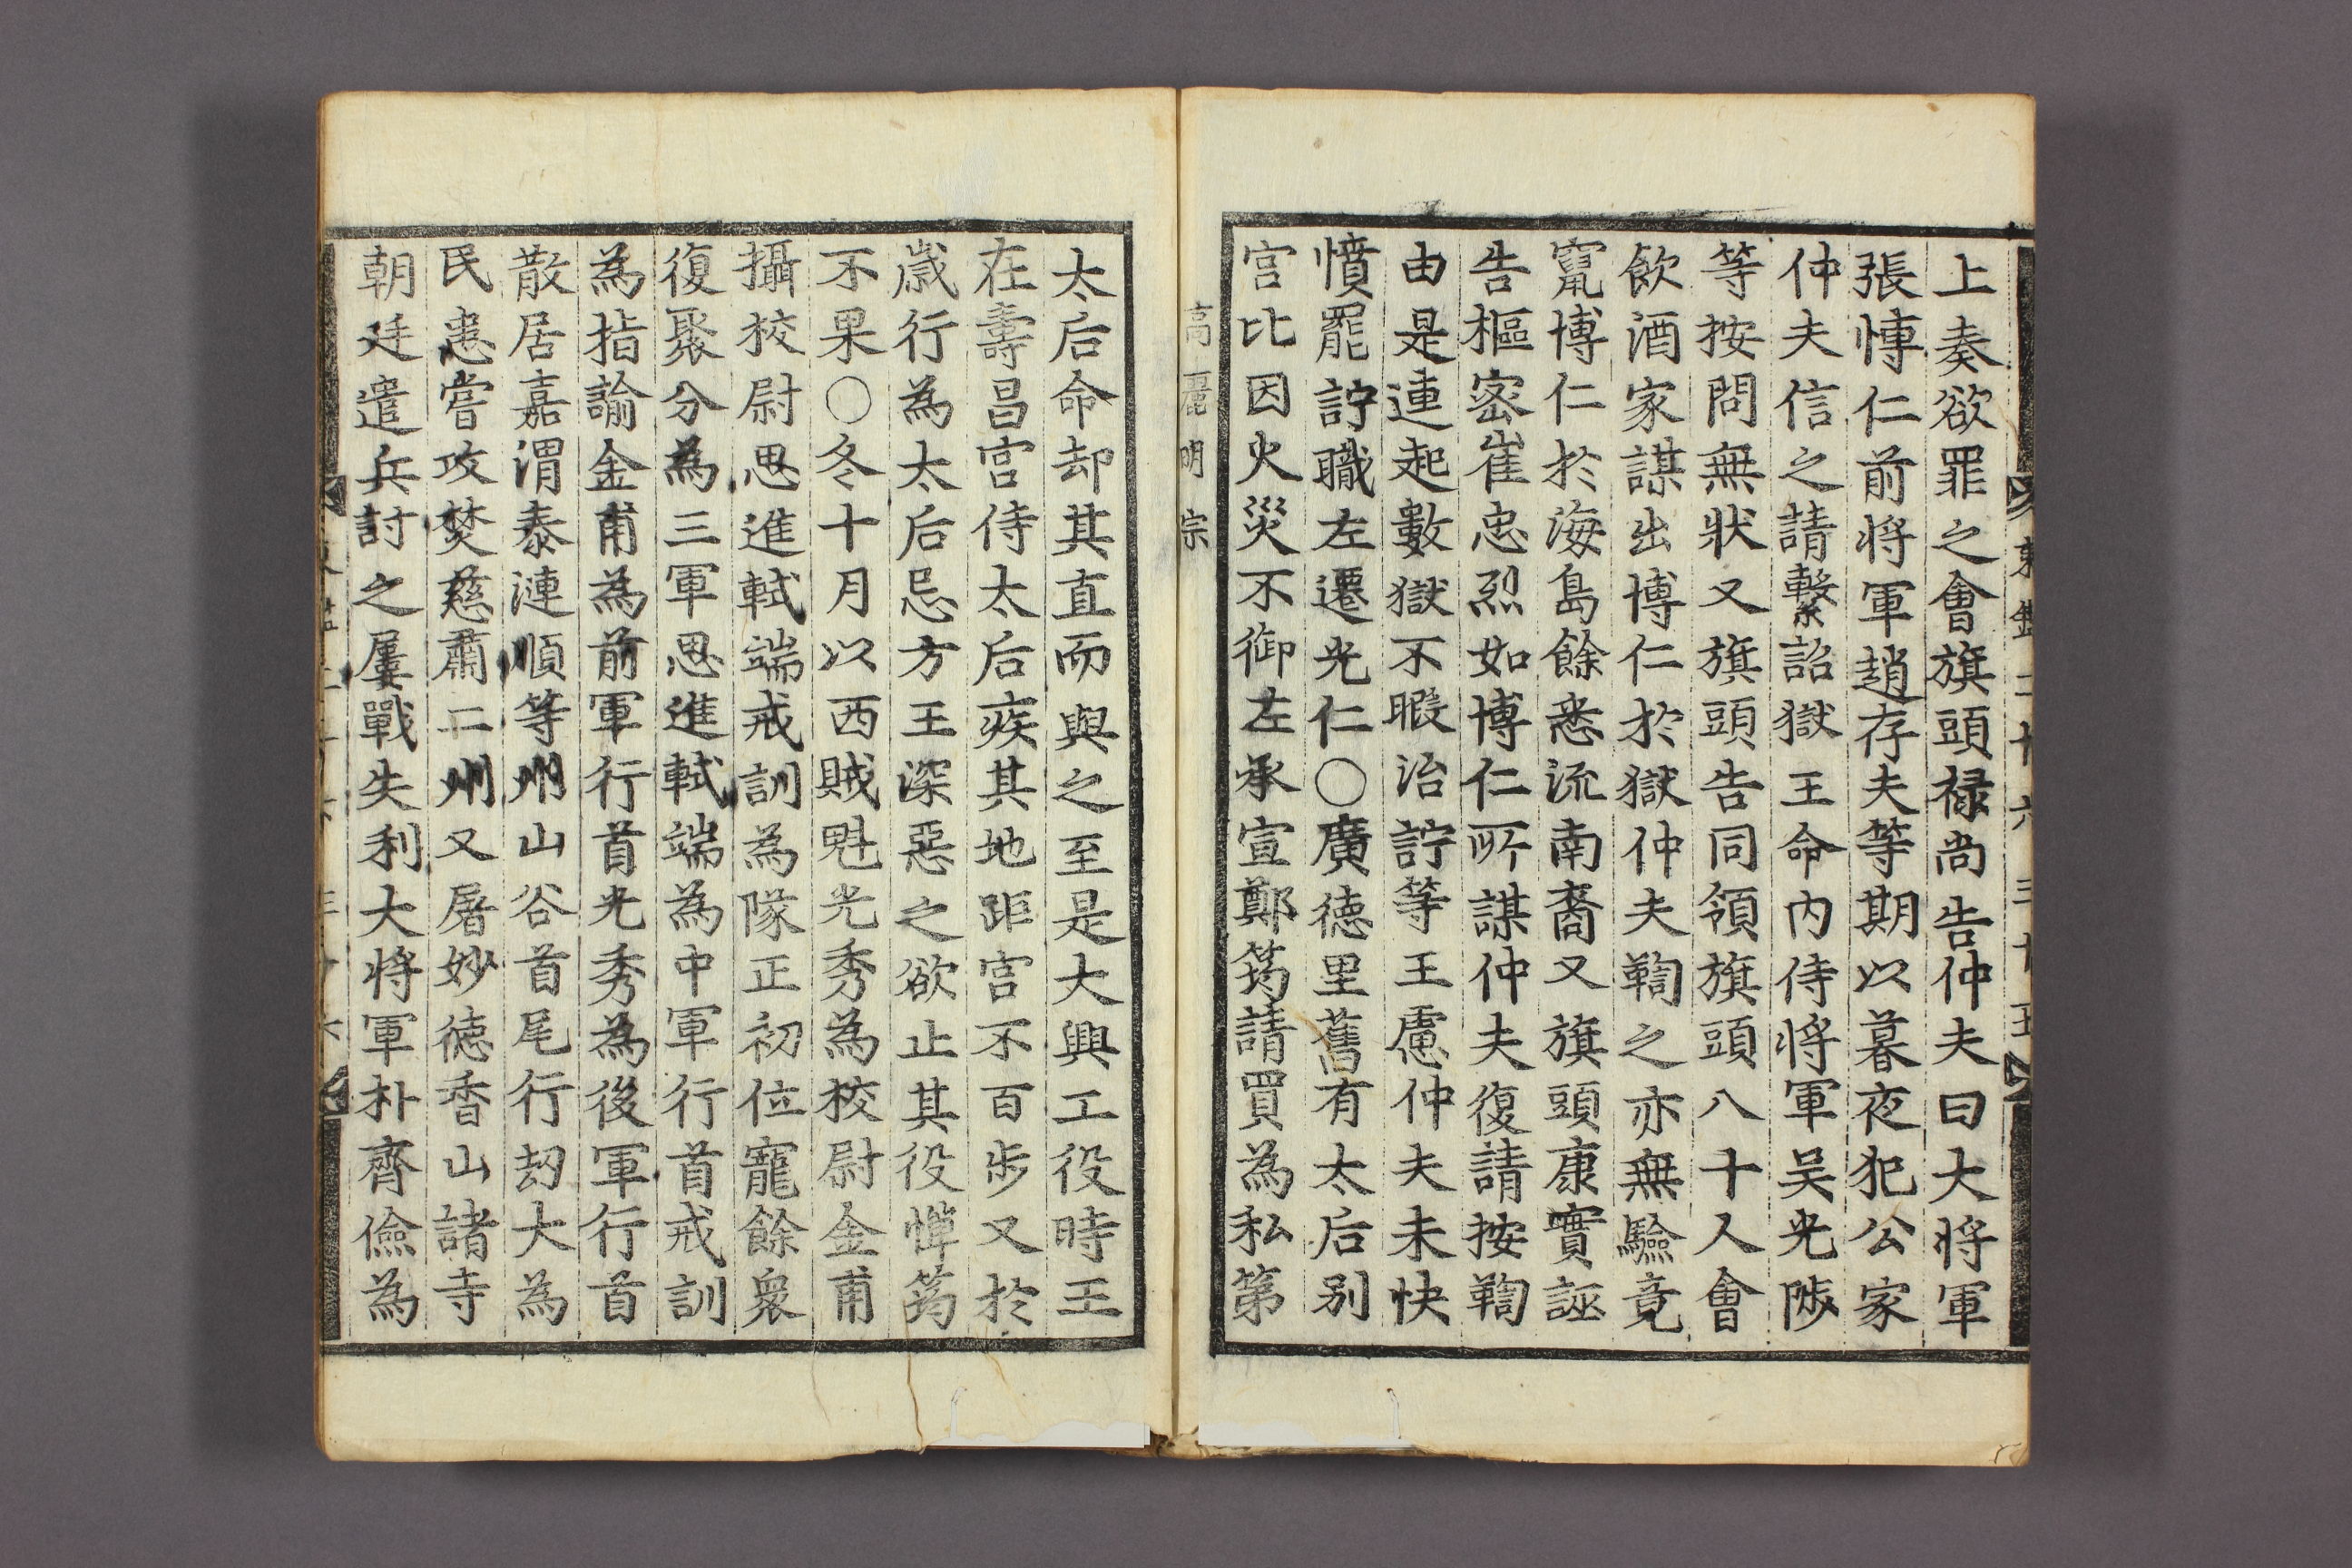 上奏欲罪之會旗頭祿尚告仲夫曰大將軍
張博仁前將軍趙存夫等期以暮夜犯公家
仲夫信之請繫詔獄王命內侍將軍吴光陟
等按問無狀又旗頭告同領旗頭八十人會
飲酒家謀出博仁於獄仲夫鞫之亦無驗竟
竄博仁於海島餘悉流南裔又旗頭康實誣
告樞密崔忠烈如博仁所謀仲夫復請按鞫
由是連起數獄不暇治諪等王慮仲夫未快
憤罷諪職左遷光仁〇廣德里舊有太后別
宮比因火災不御左承宣鄭筠請買為私第
高麗明宗
太后命却其直而與之至是大興工役時王
在壽昌宮侍太后疾其地距宮不百步又於
歲行為太后忌方王深惡之欲止其役憚筠
不果〇冬十月以西賊魁光秀為校尉金甫
攝校尉思進軾端戒訓為隊正初位寵餘衆
復聚分為三軍思進軾端為中軍行首戒訓
為指諭金甫為前軍行首光秀為後軍行首
散居嘉渭泰漣順等州山谷首尾行刼大為
民患嘗攻焚慈肅二州又屠妙德香山諸寺
朝廷遣兵討之屢戰失利大將軍朴齊儉為